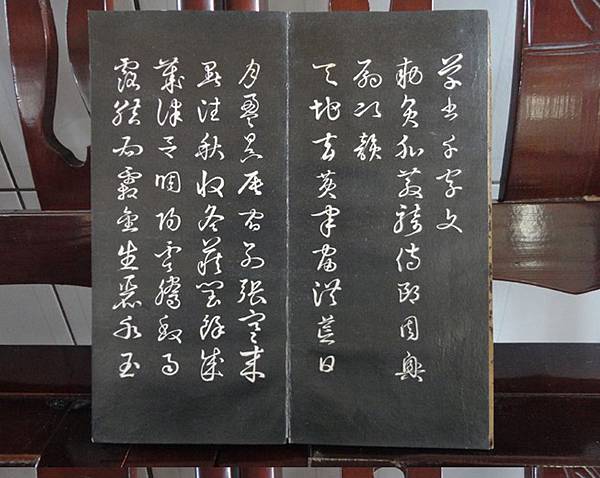 草書千字文
勅員外散騎侍郎周興
嗣次韻
天地玄黃宇宙洪荒日
月盈昃辰宿列張寒來
暑往秋收冬藏閏餘成
歲律呂調陽雲騰致雨
露結為霜金生麗水玉